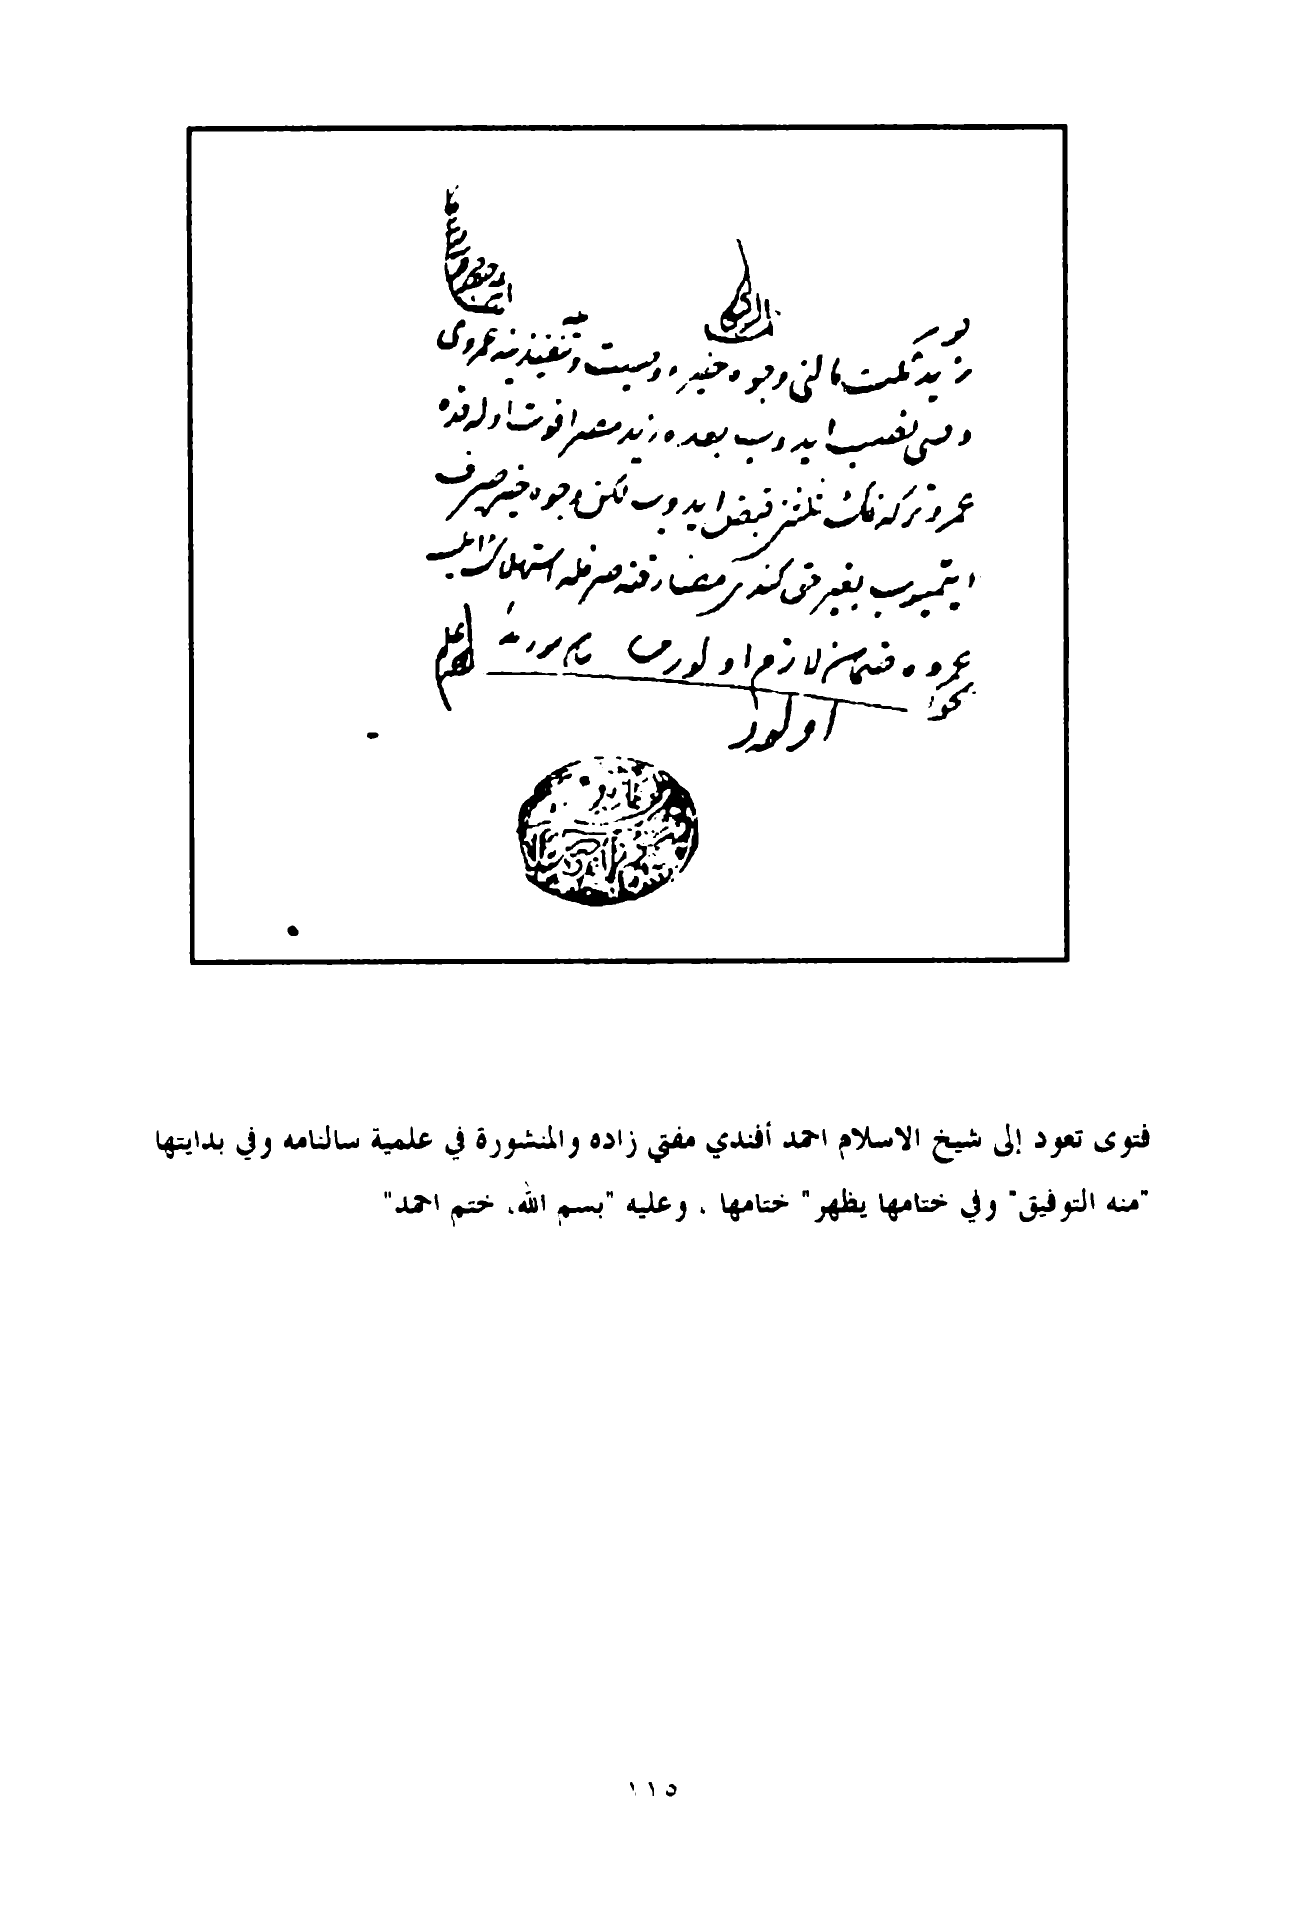 زيد ثلث مالنى وجوه خيره وصيت وتنفيذينه عمروى
وصى نصب ايدوب بعده زيد مصرا فوت اولدقده
عمرو تركه نك ثلثنى قبض ايدوب لكن وجوه خيره صرف
ايتميوب بغير حق كندى مصارفنه صرفله استهلاك ايلسه
عمروه ضمان لازم اولورمى
اولور
فتوى تعود إلى شيخ الاسلام احمد أفندي مفتي زاده والمنشورة في علمية سالنامه وفي بدايتها
"منه التوفيق" وفي ختامها يظهر" ختامها ، وعليه "بسم الله، ختم احمد"
١١٥